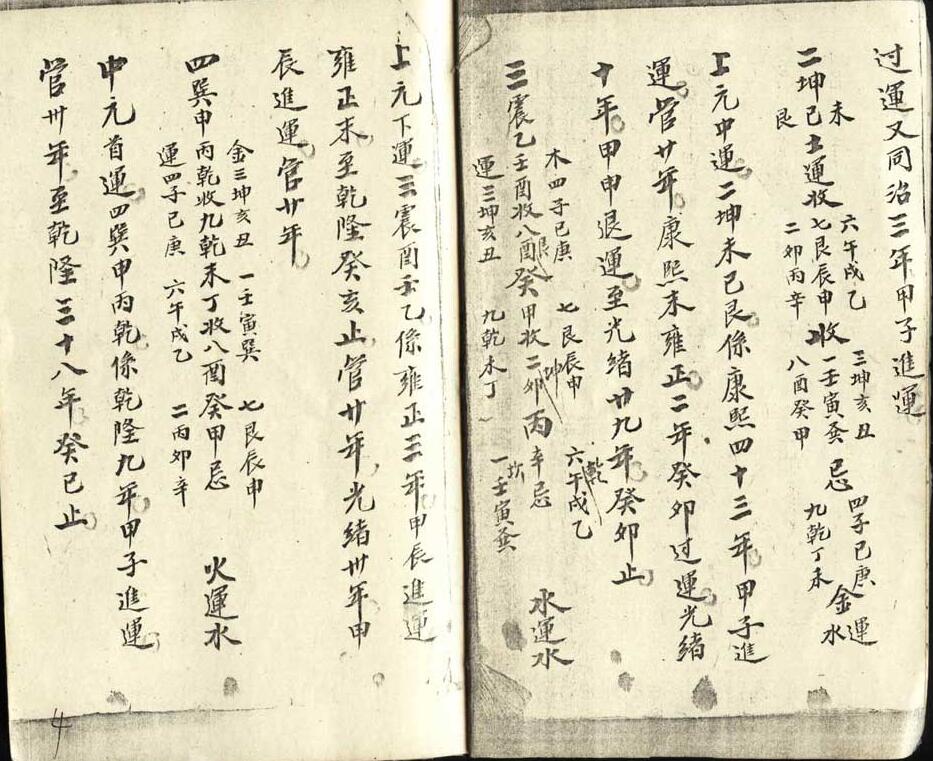 过運又同治三年甲子進運
二坤己土運收
未
艮
六午戌乙
七艮辰申
二卯丙辛
收
三坤亥丑
一壬寅巽
八酉癸甲
忌
四子己庚
九乾丁未
金運
水
上元中運二坤未己艮係康熙四十三年甲子進
運管廿年康熙末雍正二年癸卯过運光緒
十年甲申退運至光緒廿九年癸卯止
三震乙壬酉收八酉癸甲收二卯丙辛忌
木四子己庚
運三坤亥丑
艮
七艮辰申
九乾未丁
坤
乾
六午戌乙
坎
一壬寅巽
水運水
上元下運三震酉壬乙係雍正三年甲辰進運
雍正末至乾隆癸亥止管廿年光緒卅年甲
辰進運管廿年
四巽申丙乾收九乾未丁收八酉癸甲忌
金三坤亥丑
運四子己庚
一壬寅巽
六午戌乙
七艮辰申
二丙卯辛
火運水
中元首運四巽申丙乾係乾隆九年甲子進運
管卅年至乾隆三十八年癸巳止
4